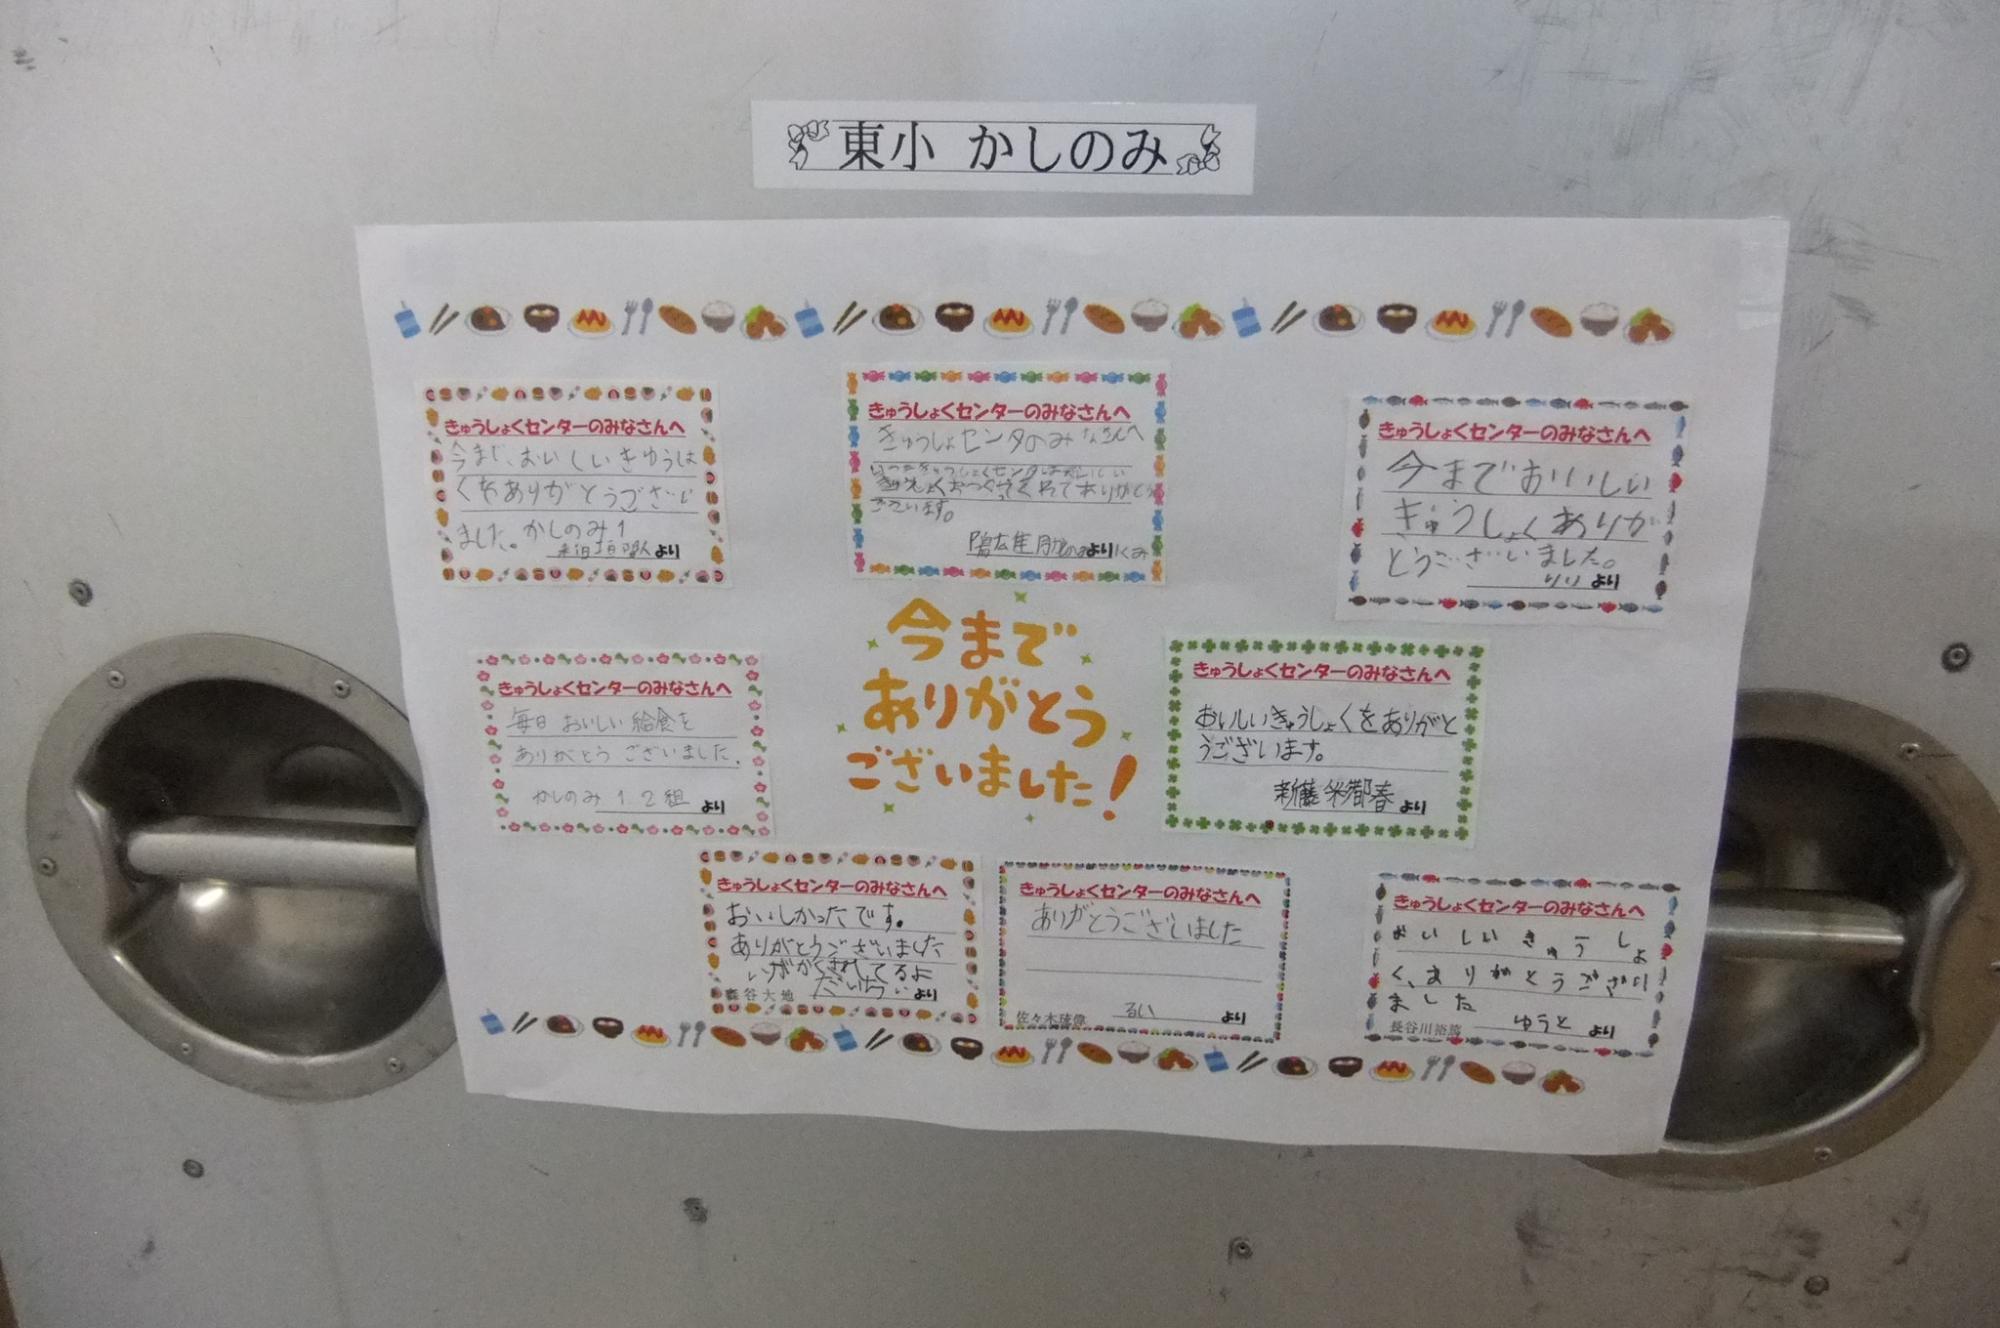 東小 かしのみ
きゅうしょくセンターのみなさんへ
今まで、おいしいきゅうしょ
くをありがとうございじ
ました。かしのみ1
より
きゅうしょくセンターのみなさんへ
きゅうしょセンタのみなさんへ
ございます。
より
きゅうしょくセンターのみなさんへ
今までおいしい
きゅうしょくありが
とうございました。
りり より
きゅうしょくセンターのみなさんへ
毎日 おいしい給食を
ありがとう ございました。
かしのみ 1.2組 より
今まで
ありがとう
ございました!
きゅうしょくセンターのみなさんへ
おいしいきゅうしょくをありがと
うございます。
より
きゅうしょくセンターのみなさんへ
おいしかったです。
ありがとうございました
大地 だいち より
きゅうしょくセンターのみなさんへ
ありがとうございました
佐々木 るい より
きゅうしょくセンターのみなさんへ
おいしいきゅうしょ
く、ありがとうござい
ました
長谷川 ゆうと より